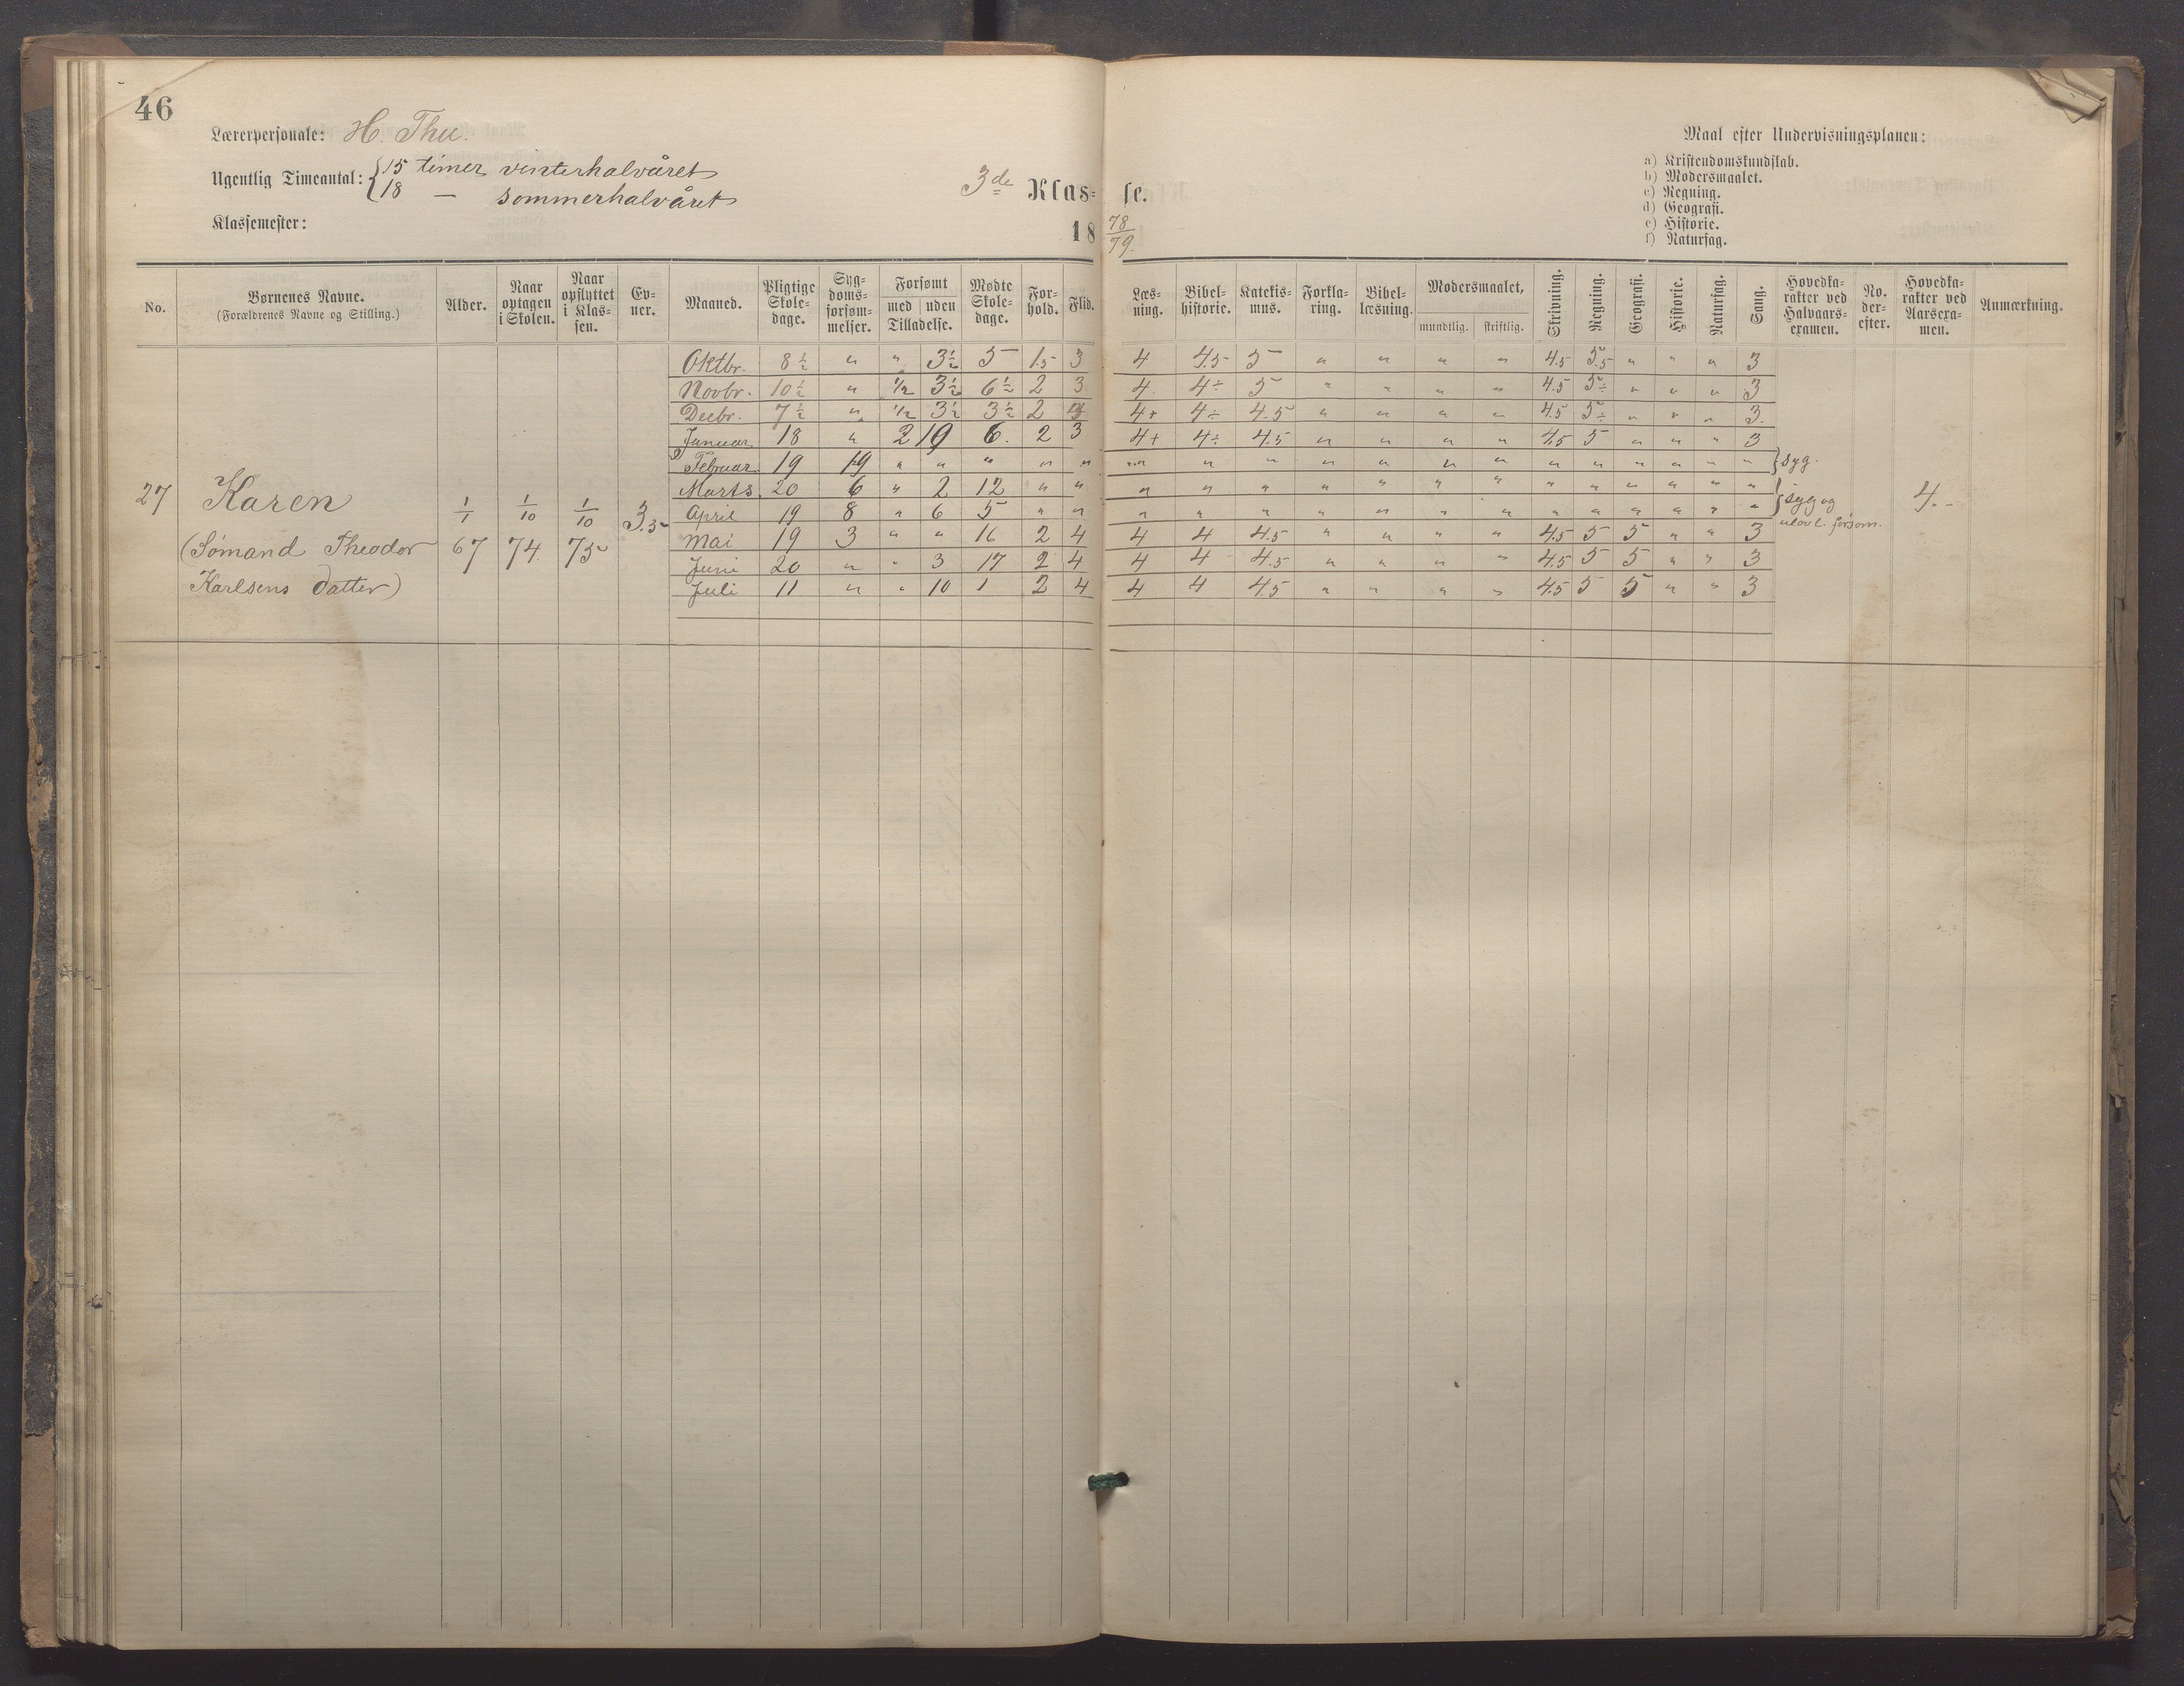 46
Lærerpersonale: H. Thu.
Ugentlig Timeantal: { 15 timer vinterhalvåret
18 — sommerhalvåret
Klassemester:
3de Klas- se.
18 78/79.
Maal efter Undervisningsplanen:
a) Kristendomskundskab.
b) Modersmaalet.
c) Regning.
d) Geografi.
e) Historie.
f) Naturfag.
No. | Børnenes Navne. (Forældrenes Navne og Stilling.) | Alder. | Naar optagen i Skolen. | Naar opflyttet i Klassen. | Evner. | Maaned. | Pligtige Skoledage. | Sygdomsforsømmelser. | Forsømt med uden Tilladelse. | Mødte Skoledage. | Forhold. | Flid. | Læsning. | Bibelhistorie. | Katekismus. | Forklaring. | Bibellæsning. | Modersmaalet, mundtlig. skriftlig. | Skrivning. | Regning. | Geografi. | Historie. | Naturfag. | Sang. | Hovedkarakter ved Halvaarsexamen. | No. derefter. | Hovedkarakter ved Aarsexamen. | Anmærkning.
Oktbr. 8½ " " 3½ 5 1.5 3 4 4.5 5 " " " " 4.5 5.5 " " " 3
Novbr. 10½ " 1/2 3½ 6½ 2 3 4. 4÷ 5 " " " " 4.5 5÷ " " " 3
Decbr. 7½ " 1/2 3½ 3½ 2 3 4+ 4÷ 4.5 " " " " 4.5 5÷ " " " 3.
Januar. 18 " 2 10 6. 2 3 4+ 4÷ 4.5 " " " " 4.5 5 " " " 3
Februar. 19 19 " " " " " " " " " " " " " " " " " " } syg.
27 Karen 1/1 1/10 1/10 3.5
Marts. 20 6 " 2 12 " " " " " " " " " " " " " " " } syg og
April 19 8 " 6 5 " " " " " " " " " " " " " " " ulovl. forsøm. 4.-
(Sømand Theodor 67 74. 75
Mai 19 3 " " 16 2 4 4 4 4.5 " " " " 4.5 5 5 " " 3
Juni 20 " " 3 17 2 4 4 4 4.5 " " " " 4.5 5 5 " " 3
Karlsens datter)
Juli 11 " " 10 1 2 4 4 4 4.5 " " " " 4.5 5 5 " " 3